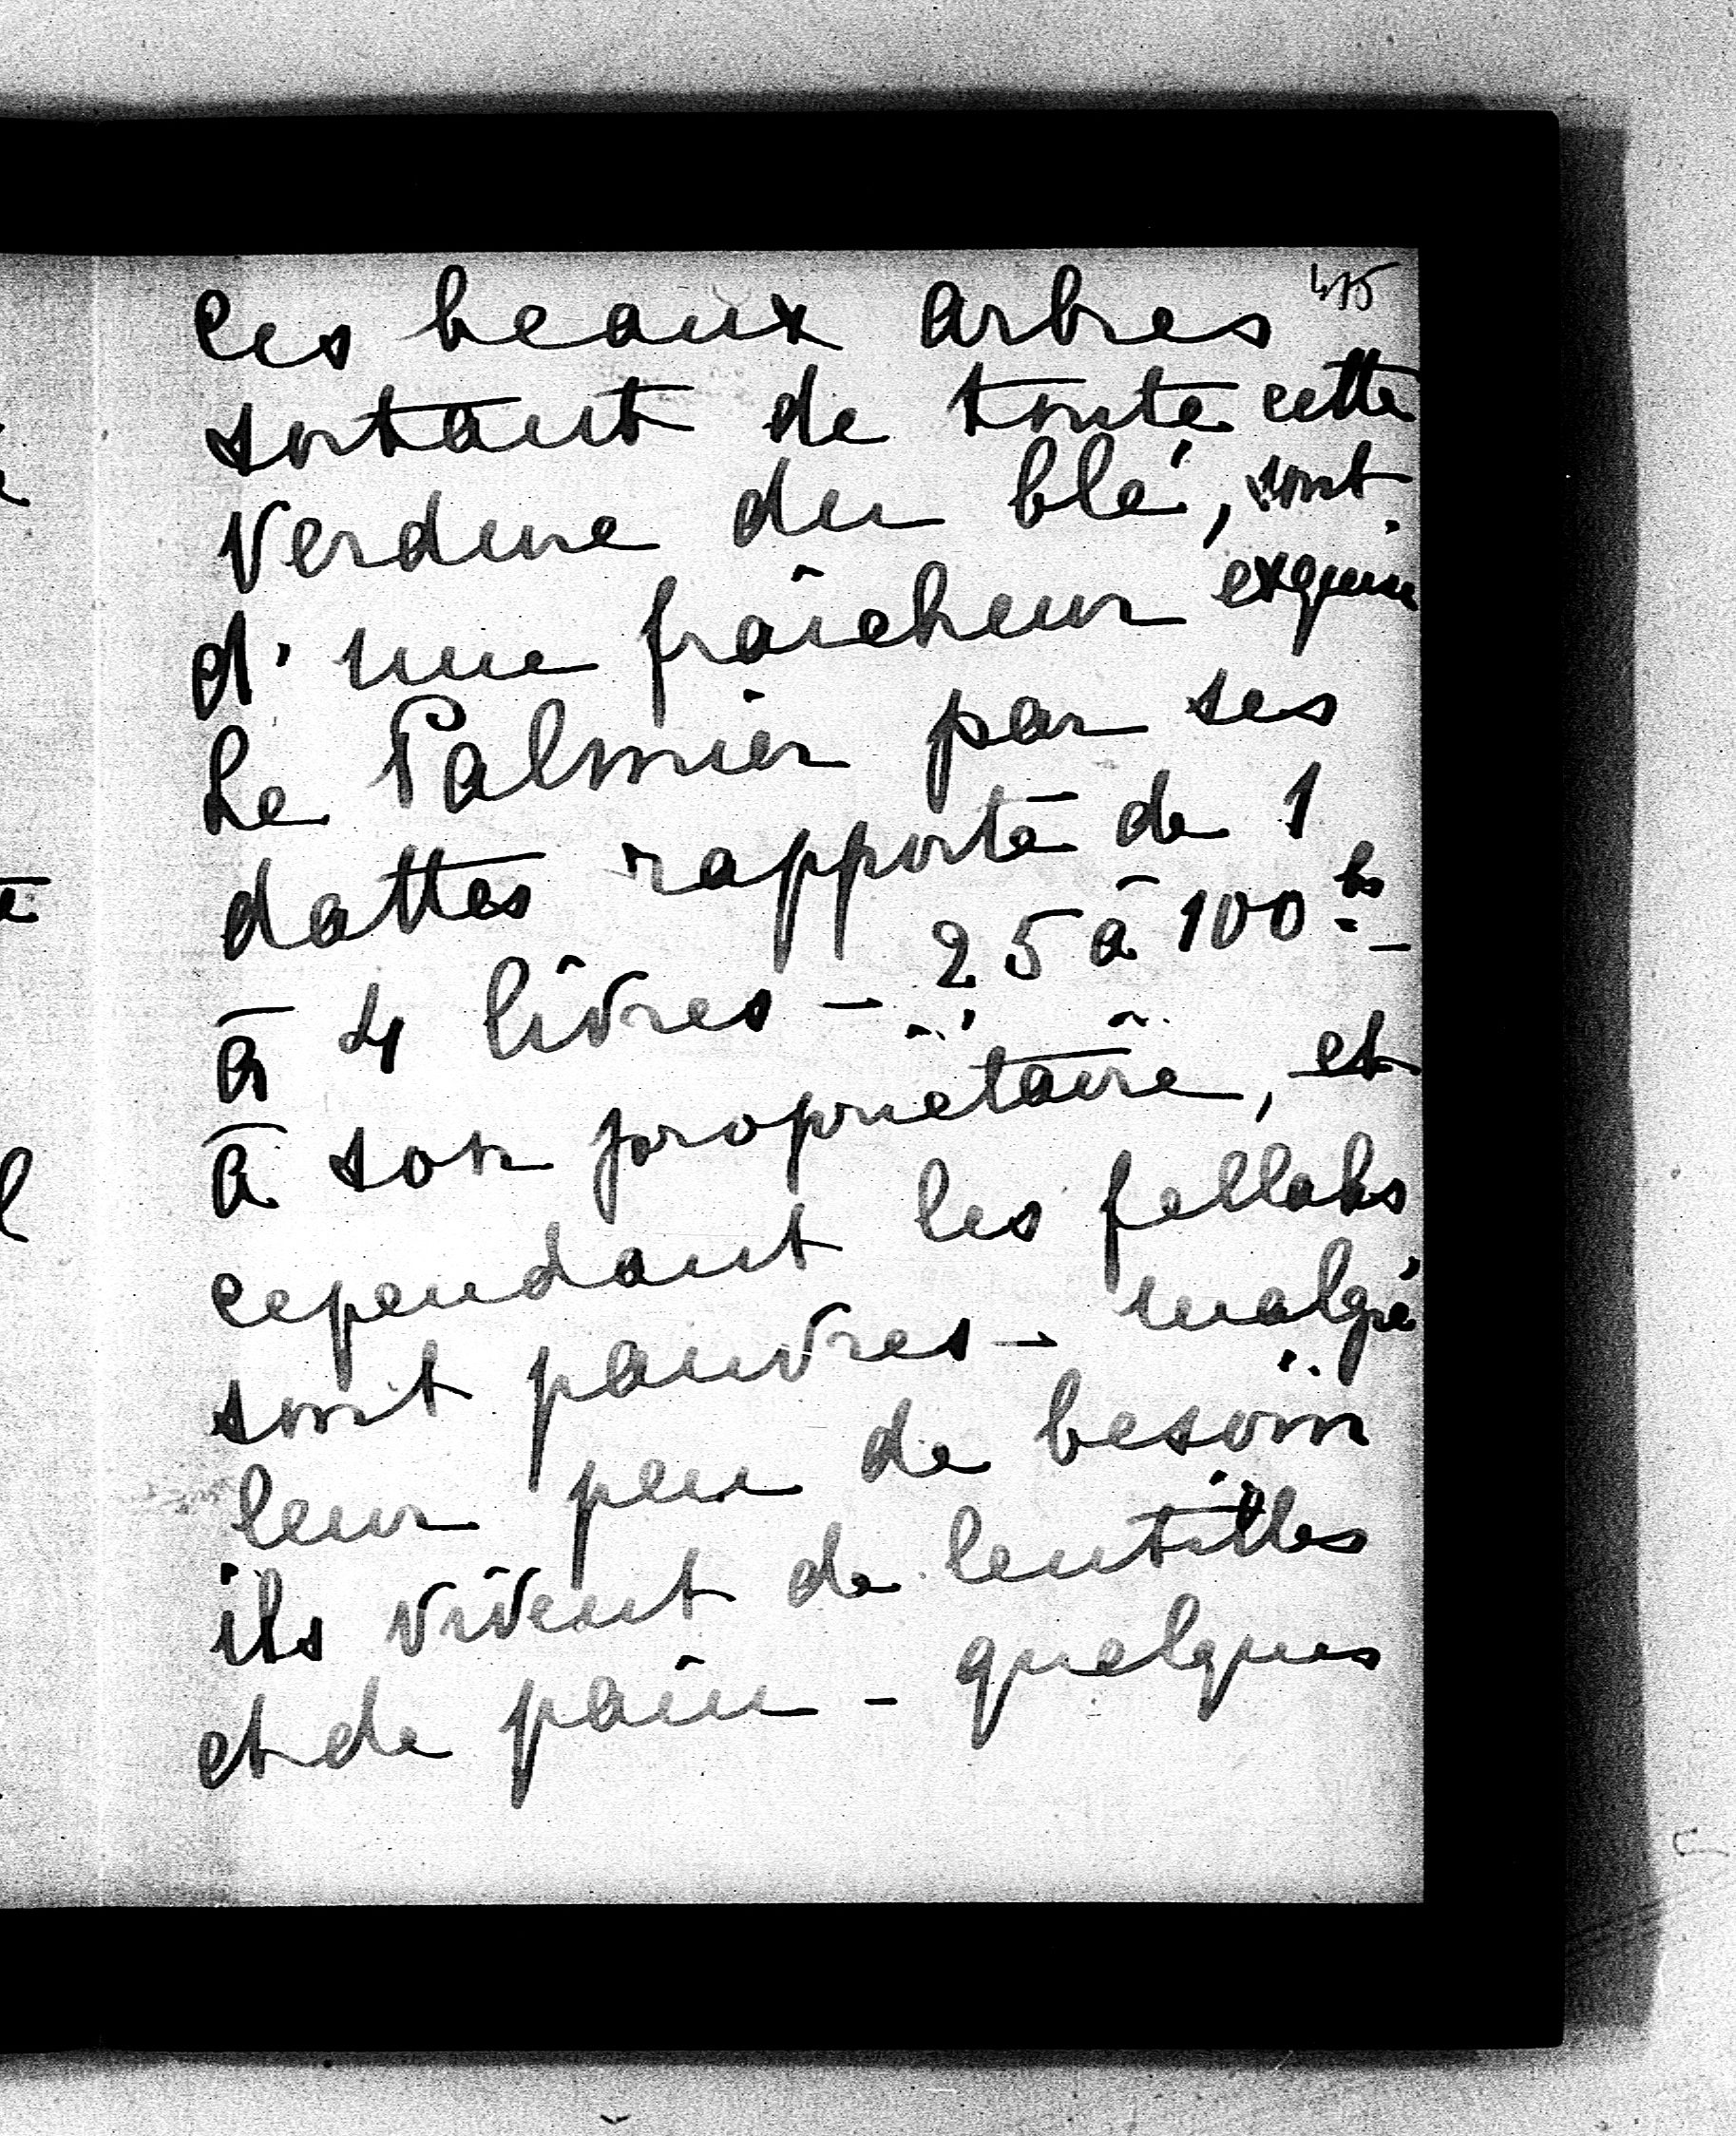 475
ces beaux arbres
sortant de toute cette
Verdure du blé, sont
d'une fraîcheur exquise
Le Palmier par ses
dattes rapporte de 1
à 4 livres - 25 à 100
à son propriétaire, et
cependant les fellahs
sont pauvres - malgré
leur peu de besoin
ils vivent de lentilles
et de pain - quelques